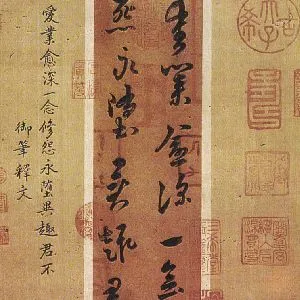 古希天子
壽
愛業愈深一念
怨永墮異趣君
愛業愈深一念修怨永墮異趣君不
御筆釋文